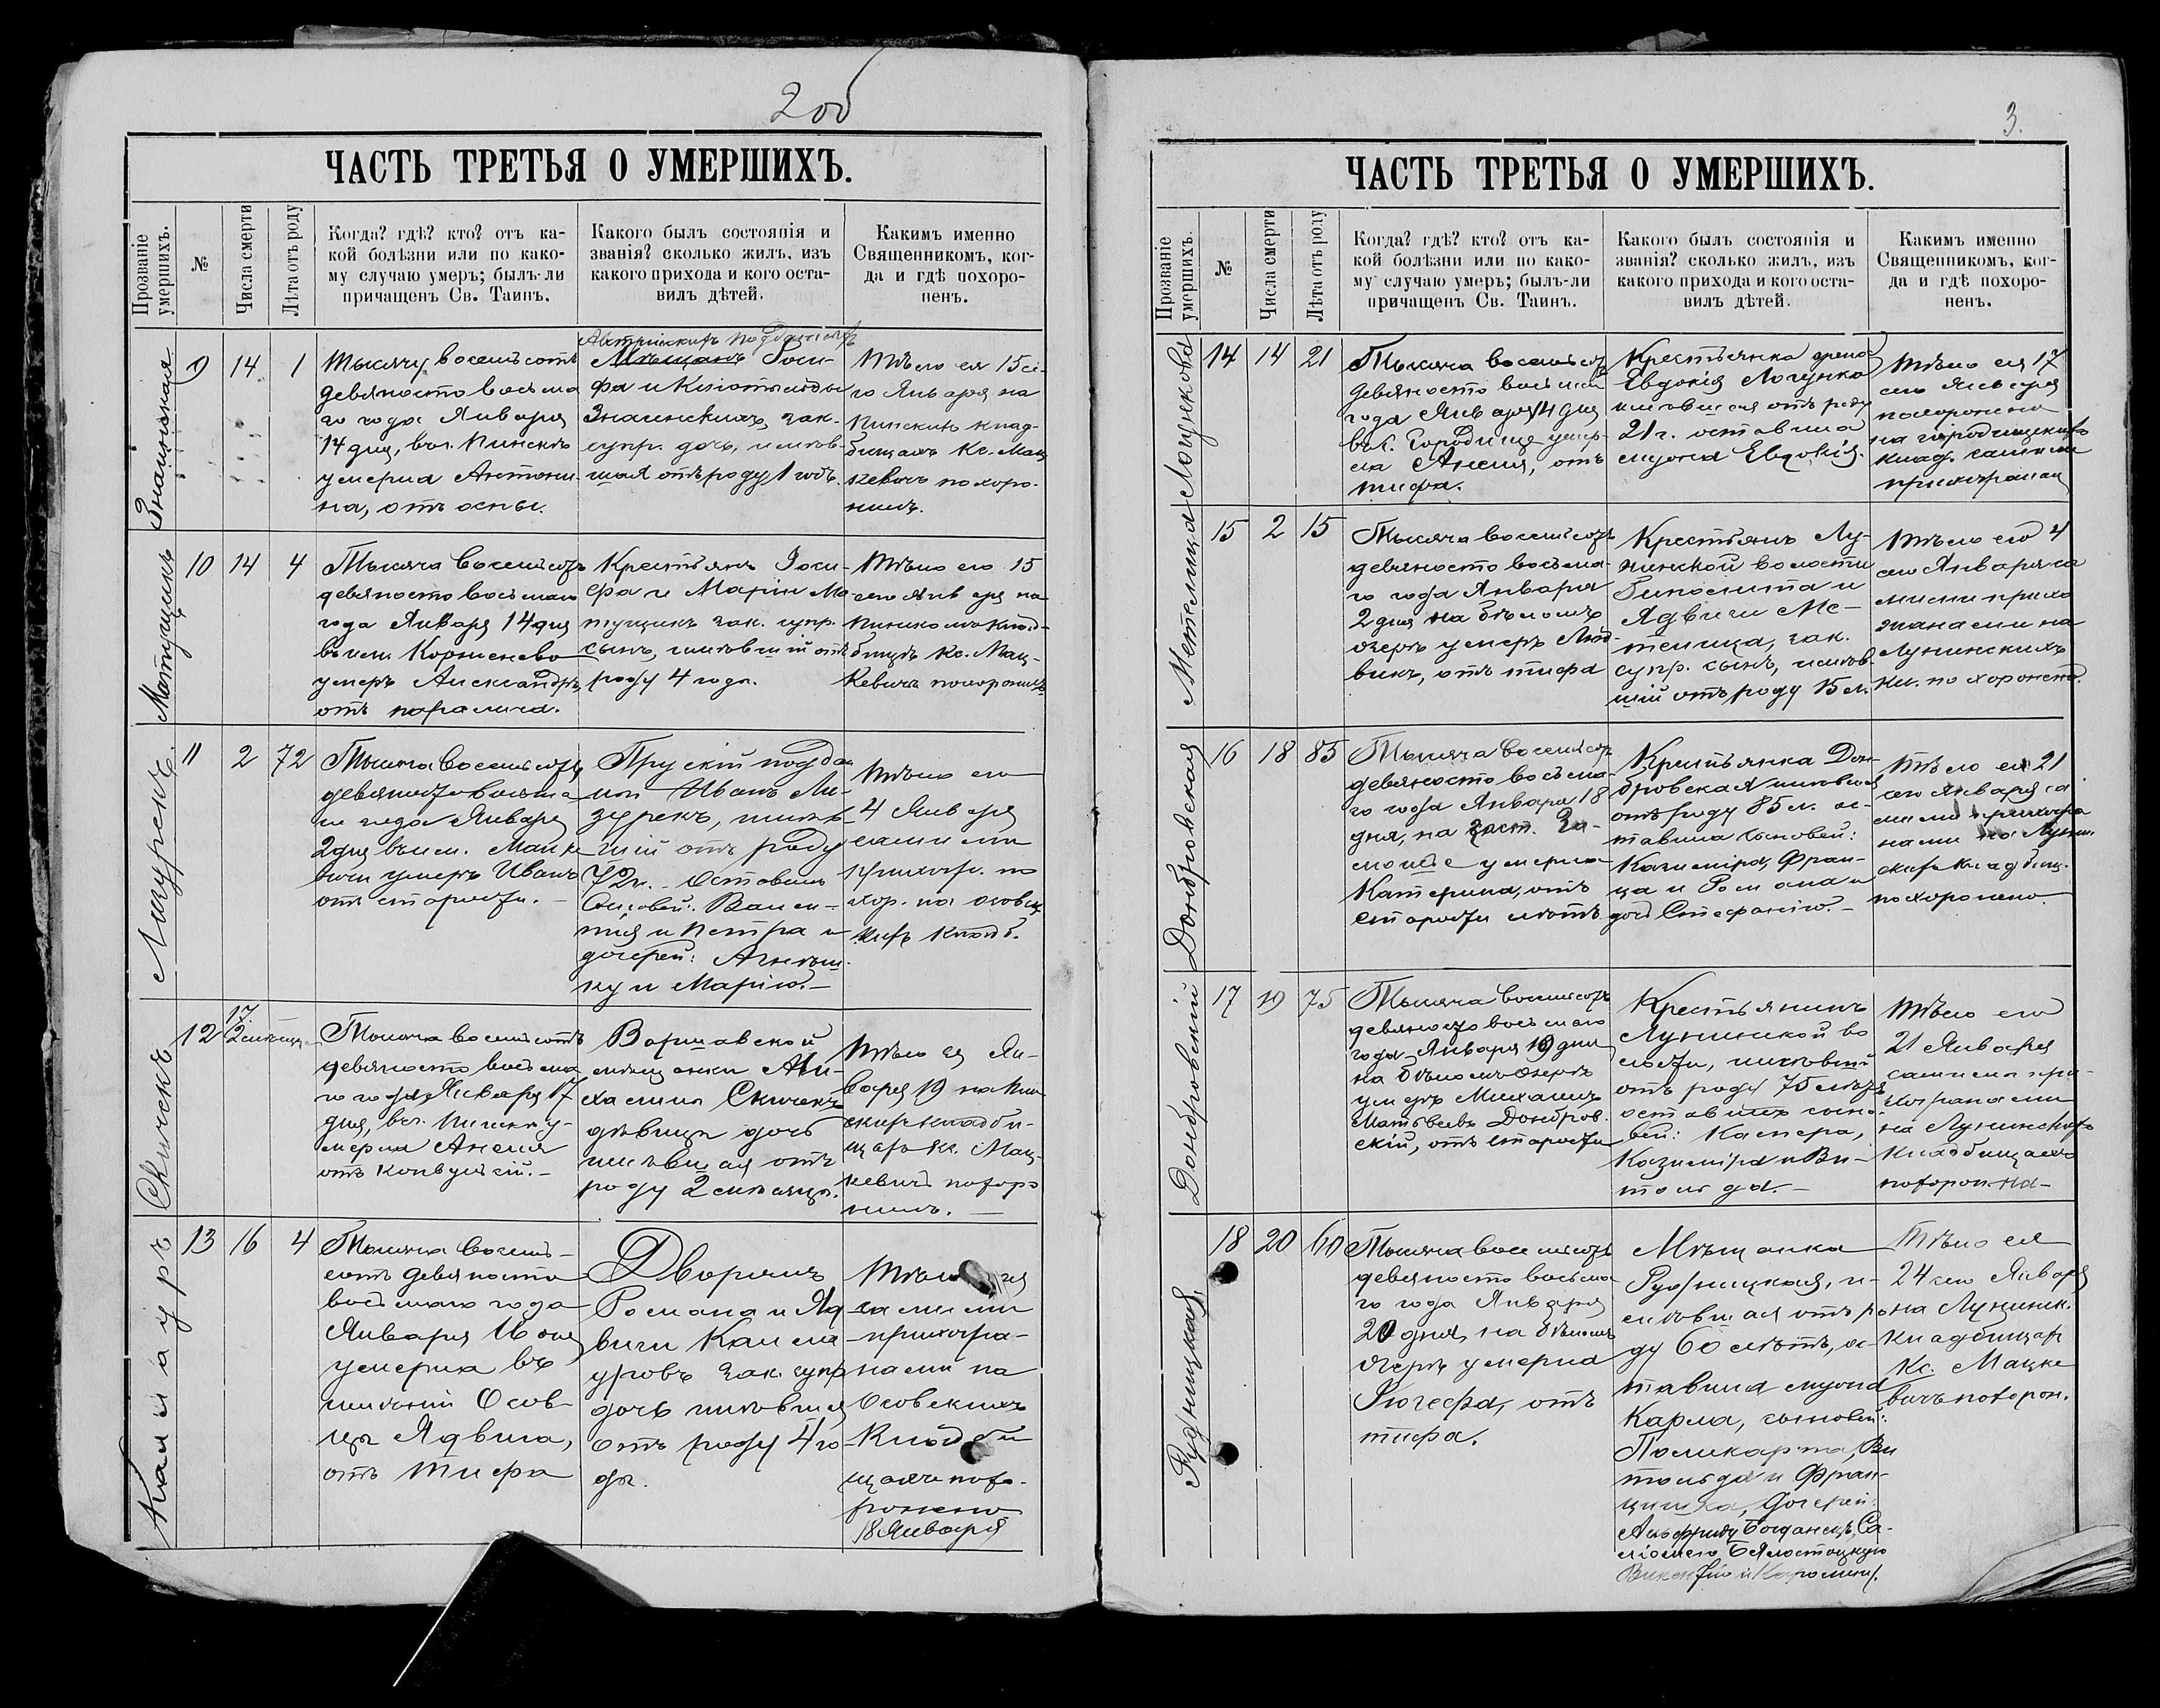 2об
ЧАСТЬ ТРЕТЬЯ О УМЕРШИХЪ.
Прозваніе умершихъ.
№
Числа смерти
Лѣта отъ роду
Когда? гдѣ? кто? отъ ка-
кой болѣзни или по како-
му случаю умеръ; былъ-ли
причащенъ Св. Таинъ.
Какого былъ состоянія и
званія? сколько жилъ, изъ
какого прихода и кого оста-
вилъ дѣтей.
Какимъ именно
Священникомъ, ког-
да и гдѣ похоро-
ненъ.
9 14 1
Тысяча восемьсотъ
девяносто восьма
го года Января
14 дня, въ г. Пинскѣ
умерла Антони-
на, отъ оспы.
Австрійскихъ подданныхъ
Мѣщанъ Іоси-
фа и
зак.
супр. дочь, имѣв-
шая отъ роду 1 годъ.
Тѣло ея 15 се-
го Января на
Пинскихъ клад-
бищахъ Кс. Мац-
кевичъ похоро-
нилъ.
Матущикъ
10 14 4
Тысяча восемьсотъ
девяносто восьмаго
года Января 14 дня
въ им. Корженево
умеръ Александръ,
отъ паралича.
Крестьянъ Іоси-
фа и Маріи Ма
тущикъ зак. супр.
сынъ, имѣвшій отъ
роду 4 года.
Тѣло его 15
сего Января на
Пинском клад-
бищѣ Кс. Мац-
кевичъ похоронилъ
Мазурекъ.
11 2 72
Тысяча восемьсотъ
девяносто восьма
го года Января
2 дня въ им.
умеръ Иванъ
отъ старости.
Прускій поддан
ный Иванъ Ма-
зурекъ, имѣв-
шій отъ роду
72 г. Оставилъ
Сыновей: Вален-
тія и Петра и
дочерей: Агнеш-
ку и Марію.
Тѣло его
4 Января
самими
прихож. по
хор. на осовец
кихъ кладб.
Скичекъ
12 17. 2 мѣсяца
Тысяча восемьсотъ
девяносто восьма
го года Января 17
дня, въ г. Пинскѣ у-
мерла Анеля
отъ конвульсій.
Варшавской
мѣщанки Ми-
халины Скичекъ
дѣвицы дочь
имѣвшая отъ
роду 2 мѣсяца.
Тѣло ея Ян-
варя 19 на Пин
скихъ кладби-
щахъ Кс. Мац-
кевичъ похоро
нилъ.
Калмауръ
13 16 4
Тысяча восемь-
сотъ девяносто
восьмаго года
Января 16 дня
умерла въ
имѣніи Осов-
цы Ядвига,
отъ тифа
Дворянъ
Романа и Яд
виги Калма
уровъ зак. супр.
дочь имѣвшая
отъ роду 4 го-
да.
Тѣло ея
самими
прихожа-
нами на
Осовскихъ
Кладби
щахъ похо-
ронено
18 Января
3.
ЧАСТЬ ТРЕТЬЯ О УМЕРШИХЪ.
Прозваніе умершихъ.
№
Числа смерти
Лѣта отъ роду
Когда? гдѣ? кто? отъ ка-
кой болѣзни или по како-
му случаю умеръ; былъ-ли
причащенъ Св. Таинъ.
Какого былъ состоянія и
званія? сколько жилъ, изъ
какого прихода и кого оста-
вилъ дѣтей.
Какимъ именно
Священникомъ, ког-
да и гдѣ похоро-
ненъ.
Логункова
14 14 21
Тысяча восемьсотъ
девяносто восьмаго
года Января 14 дня
въ с. Городище умер-
ла Анеля, отъ
тифа.
Крестьянка
Евдокія Логунко
имѣвшая отъ роду
21 г. оставила
мужа Евдокія.
Тѣло ея 17
сего Января
похоронено
на городищскихъ
клад. самими
прихожанам
Метелица
15 2 15
Тысяча восемьсотъ
девяносто восьма-
го года Января
2 дня на бѣломъ
озерѣ умеръ Люд-
викъ, отъ тифа
Крестьянъ Лу-
нинской волости
Ипполита и
Ядвиги Ме-
телица, зак.
супр. сынъ, имѣв-
шій отъ роду 15 л.
Тѣло его 4
сего Января са
мими прихо
жанами на
Лунинскихъ
кл. похоронено.
Домбровская
16 18 85
Тысяча восемьсотъ
девяносто восьма-
го года Января 18
дня, на заст. За-
умерла
Катерина, отъ
старости лѣтъ
Крестьянка Дом-
бровская имѣвшая
отъ роду 85 л. ос-
тавила сыновей:
Казиміра, Фран-
ца и Романа и
дочь Стефанію.
Тѣло ея 21
сего Января са
мими прихожа
нами на Лунин-
скихъ кладбищ.
похоронено.
Домбровскій
17 19 75
Тысяча восемьсотъ
девяносто восьмаго
года Января 19 дня
на бѣломъ озерѣ
умеръ Михаилъ
Матвѣевъ Домбров-
скій, отъ старости
Крестьянинъ
Лунинской во
лости, имѣвшій
отъ роду 75 лѣтъ
оставилъ сыно-
вей: Каспера,
Казиміра и Ви-
тольда.
Тѣло его
21 Января
самими при-
хожанами
на Лунинскихъ
Кладбищахъ
похорон-на-
Рудницкая.
18 20 60
Тысяча восемьсотъ
девяносто восьма
го года Января
20 дня, на бѣломъ
озерѣ умерла
Іозефа, отъ
тифа.
Мѣщанка
Рудницкая, и-
мѣвшая отъ ро
ду 60 лѣтъ, ос-
тавила мужа
Карла, сыновей:
Поликарпа, Ви
тольда и Фран-
цишка, дочерей:
Альфриду Богданецъ, Са-
ломею Бѣлостоцкую
Викентію и Каролину.
Тѣло ея
24 сего Января
на Лунинск.
кладбищахъ
Кс. Мацке
вичъ похорон.